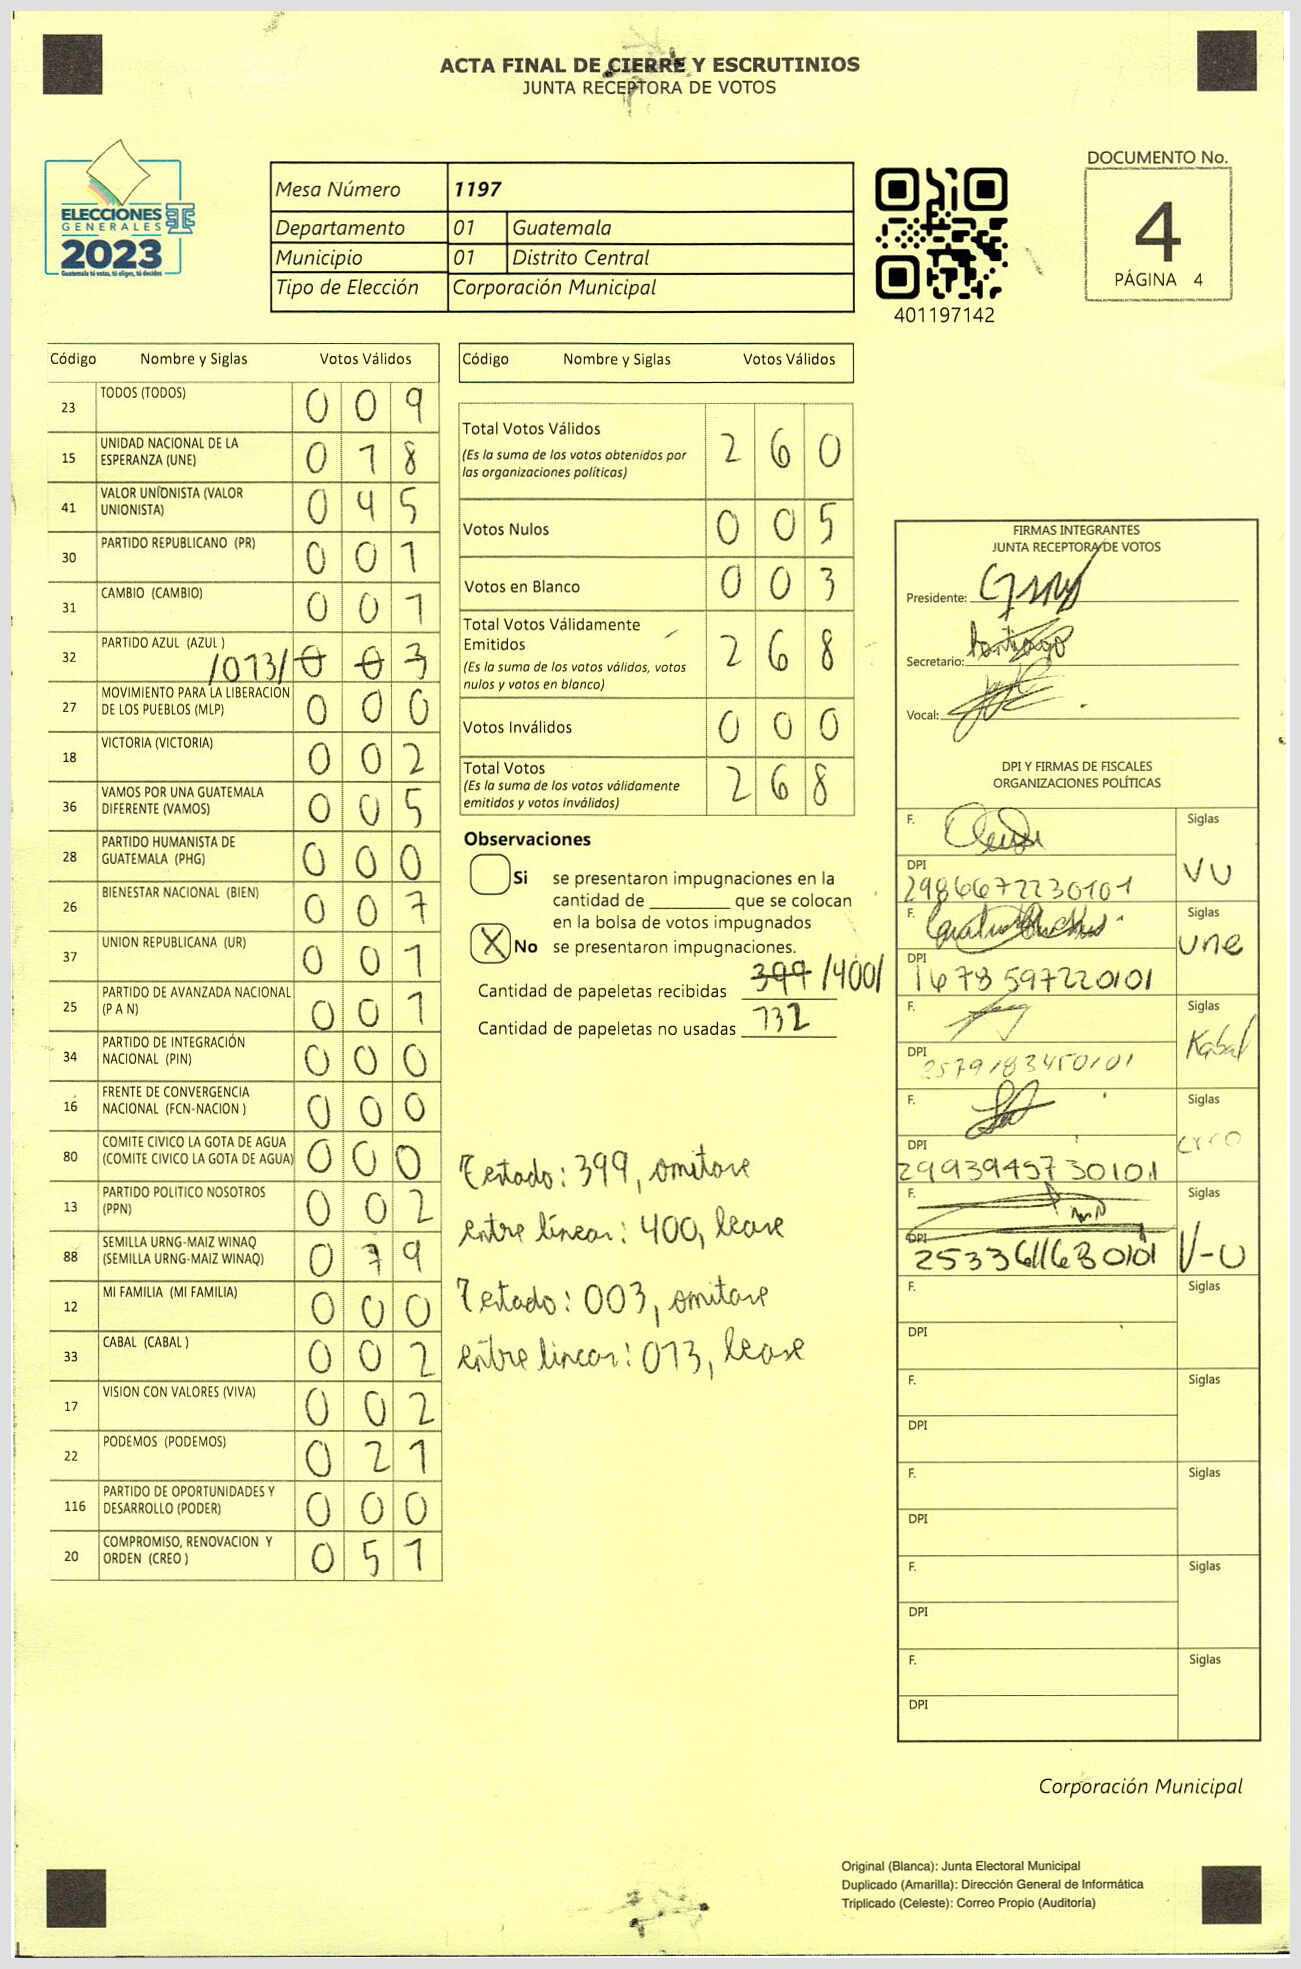 ACTA FINAL DE CIERRE Y ESCRUTINIOS
JUNTA RECEPTORA DE VOTOS
ELECCIONES
GENERALES
2023
Guatemala tú votas, tú eliges, tú decides
Mesa Número 1197
Departamento 01 Guatemala
Municipio 01 Distrito Central
Tipo de Elección Corporación Municipal
401197142
DOCUMENTO No.
4
PÁGINA 4
Código Nombre y Siglas Votos Válidos
23 TODOS (TODOS) 0 0 9
15 UNIDAD NACIONAL DE LA ESPERANZA (UNE) 0 1 8
41 VALOR UNIONISTA (VALOR UNIONISTA) 0 4 5
30 PARTIDO REPUBLICANO (PR) 0 0 1
31 CAMBIO (CAMBIO) 0 0 1
32 PARTIDO AZUL (AZUL ) /013/ 0 0 3
27 MOVIMIENTO PARA LA LIBERACION DE LOS PUEBLOS (MLP) 0 0 0
18 VICTORIA (VICTORIA) 0 0 2
36 VAMOS POR UNA GUATEMALA DIFERENTE (VAMOS) 0 0 5
28 PARTIDO HUMANISTA DE GUATEMALA (PHG) 0 0 0
26 BIENESTAR NACIONAL (BIEN) 0 0 7
37 UNION REPUBLICANA (UR) 0 0 1
25 PARTIDO DE AVANZADA NACIONAL (P A N) 0 0 1
34 PARTIDO DE INTEGRACIÓN NACIONAL (PIN) 0 0 0
16 FRENTE DE CONVERGENCIA NACIONAL (FCN-NACION ) 0 0 0
80 COMITE CIVICO LA GOTA DE AGUA (COMITE CIVICO LA GOTA DE AGUA) 0 0 0
13 PARTIDO POLITICO NOSOTROS (PPN) 0 0 2
88 SEMILLA URNG-MAIZ WINAQ (SEMILLA URNG-MAIZ WINAQ) 0 79
12 MI FAMILIA (MI FAMILIA) 0 0 0
33 CABAL (CABAL ) 0 0 2
17 VISION CON VALORES (VIVA) 0 0 2
22 PODEMOS (PODEMOS) 0 2 1
116 PARTIDO DE OPORTUNIDADES Y DESARROLLO (PODER) 0 0 0
20 COMPROMISO, RENOVACION Y ORDEN (CREO ) 0 5 1
Código Nombre y Siglas Votos Válidos
Total Votos Válidos 2 6 0
(Es la suma de los votos obtenidos por
las organizaciones políticas)
Votos Nulos 0 0 5
Votos en Blanco 0 0 3
Total Votos Válidamente
Emitidos 2 6 8
(Es la suma de los votos válidos, votos
nulos y votos en blanco)
Votos Inválidos 0 0 0
Total Votos 2 6 8
(Es la suma de los votos válidamente
emitidos y votos inválidos)
Observaciones
Si se presentaron impugnaciones en la
cantidad de ________ que se colocan
en la bolsa de votos impugnados
X No se presentaron impugnaciones.
Cantidad de papeletas recibidas 399 /400/
Cantidad de papeletas no usadas 132
Testado: 399, omitase
entre lineas: 400, lease
Testado: 003, omitase
entre lineas: 013, lease
FIRMAS INTEGRANTES
JUNTA RECEPTORA DE VOTOS
Presidente:
Secretario:
Vocal:
DPI Y FIRMAS DE FISCALES
ORGANIZACIONES POLÍTICAS
F. Siglas
VU
DPI
2986672230101
F. Siglas
une
DPI
1678597220101
F. Siglas
Kabal
DPI
2579183450101
F. Siglas
creo
DPI
2993945730101
F. Siglas
V-U
DPI
2533611680101
F. Siglas
DPI
F. Siglas
DPI
F. Siglas
DPI
F. Siglas
DPI
F. Siglas
DPI
Corporación Municipal
Original (Blanca): Junta Electoral Municipal
Duplicado (Amarilla): Dirección General de Informática
Triplicado (Celeste): Correo Propio (Auditoría)